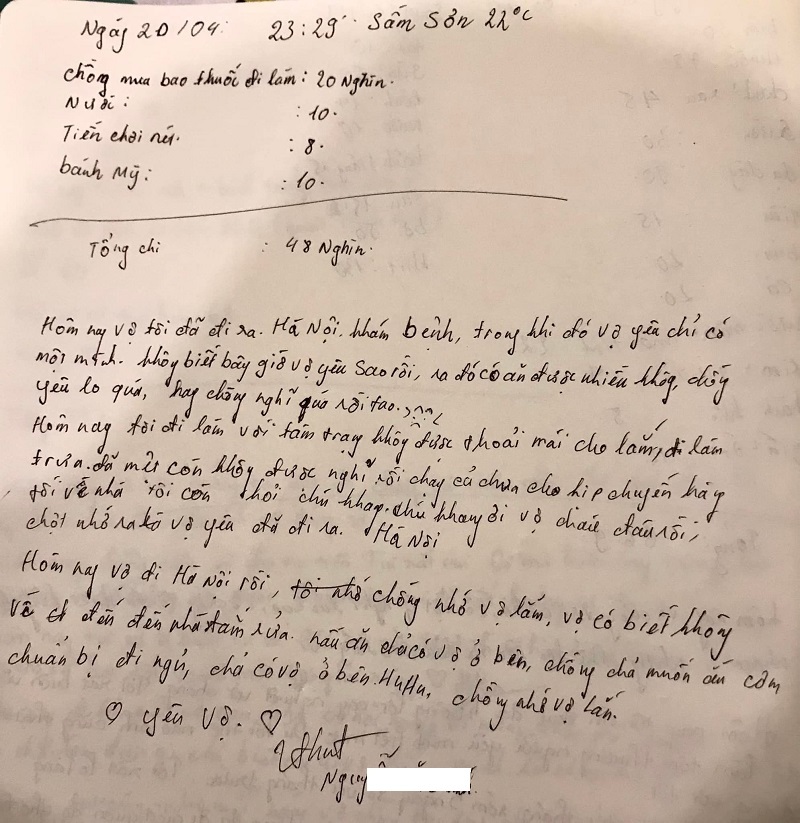 Ngáy 20/04: 23:29' Sấm Sơn 22°C
chồng mua bao thuốc đi lám: 20 Nghìn.
Nước: : 10.
Tiến chơi nét. : 8.
bánh Mỳ: : 10.
Tổng chi : 48 Nghìn.
Hôm nay vợ tôi đã đi ra. Há Nội. khám bệnh, trong khi đó vợ yêu chỉ có
một mính. không biết bây giờ vợ yêu sao rồi, ra đó có ăn được nhiều không, chồng
yêu lo quá, hay chồng nghĩ quá rồi
Hôm nay tôi đi lám với tâm trạng không được thoải mái cho lắm, đi lám
trưa. đã mệt cón không được nghỉ rồi chạy cả trưa cho kịp chuyến háng
tối về nhá tôi cón hỏi chú khang. chú khang ơi vợ cháu đâu rồi,
chợt nhớ ra lá vợ yêu đã đi ra. Há Nội
Hôm nay vợ đi Há Nội rồi, tôi nhớ chồng nhớ vợ lắm, vợ có biết không
về đến đến nhá tắm rửa. nấu ăn chả có vợ ở bên, chồng chả muốn ăn cơm
chuẩn bị đi ngủ, chả có vợ ở bên. HuHu, chồng nhớ vợ lắm.
♡ yêu vợ. ♡